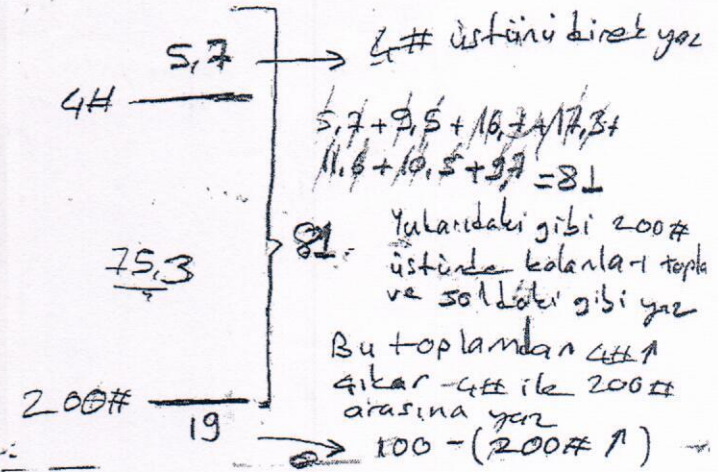 5,7 → 4# üstünü direk yaz
4#
5,7+9,5+16,7+17,3+
11,6+10,5+9,7=81
81
75,3
Yukarıdaki gibi 200#
üstünde kalanları topla
ve soldaki gibi yaz
Bu toplamdan 4#↑
çıkar 4# ile 200#
arasına yaz
200#
19 → 100-(200#↑)